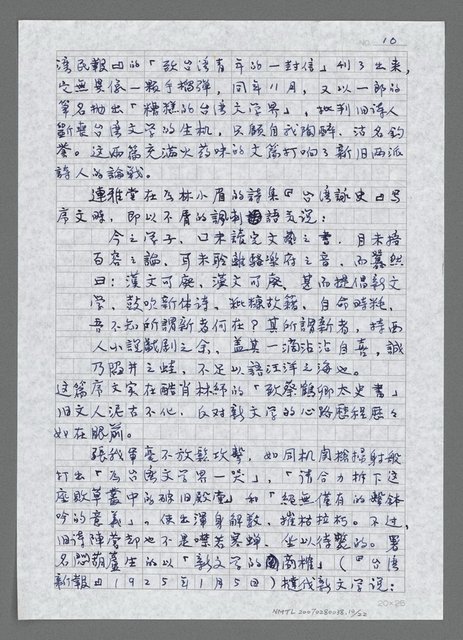 10
湾民報』的「致台湾青年的一封信」刊了出来,
它無異低一顆手榴弾，同年11月，又以一郎的
筆名抛出「糟糕的台湾文学界」，批判旧詩人
斷喪台湾文学的生机，只顧自我陶醉、沽名釣
誉。这兩篇充滿火药味的文篇打响了新旧两派
詩人的論戦。
連雅堂在為林小眉的詩集『台湾詠史』写
序文時，即以不屑的諷刺語文説：
今之学子、口未讀六藝之書，目未接
百家之論、耳未聆離騷樂府之音，而囂然
曰：漢文可廢，漢文可廢、甚而提倡新文
学，鼓吹新体诗，粃糠故籍，自命時髦，
吾不知所謂新者何在？其所謂新者，特西
人小説戯剧之余，蓋其一滴沾沾自喜，誠
乃陷井之蛙，不足以語汪洋之海也。
这篇序文实在酷肖林紓的「致蔡鶴卿太史書」
旧文人泥古不化，反对新文学的心路歷程歷々
如在眼前。
張我軍毫不放鬆攻擊，如同机関槍掃射般
打出「為台湾文学界一哭」，「请合力折下这
座敗草叢中的破旧殿堂」和「絕無僅有的擊鉢
吟的意義」。使出渾身解數，摧枯拉朽。不过，
旧诗陣營却也不是噤若寒蟬、坐以待斃的。署
名悶葫蘆生的以「新文学的商榷」（『台湾
新報』1925年1月5日）撻伐新文学説：
20×25
NMTL 20070280038.19/22